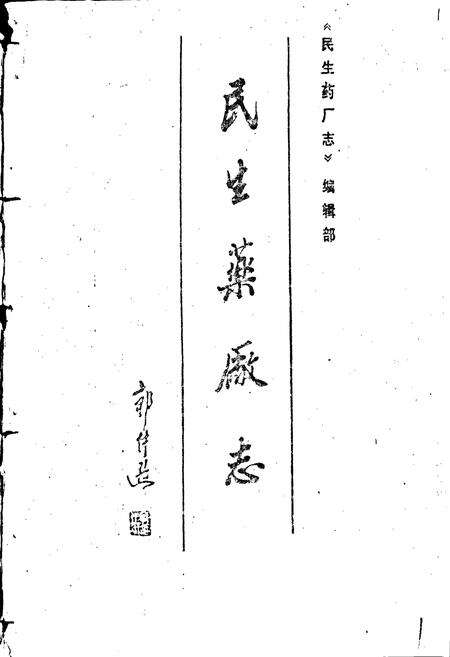 《民生药厂志》编辑部
民生藥廠志